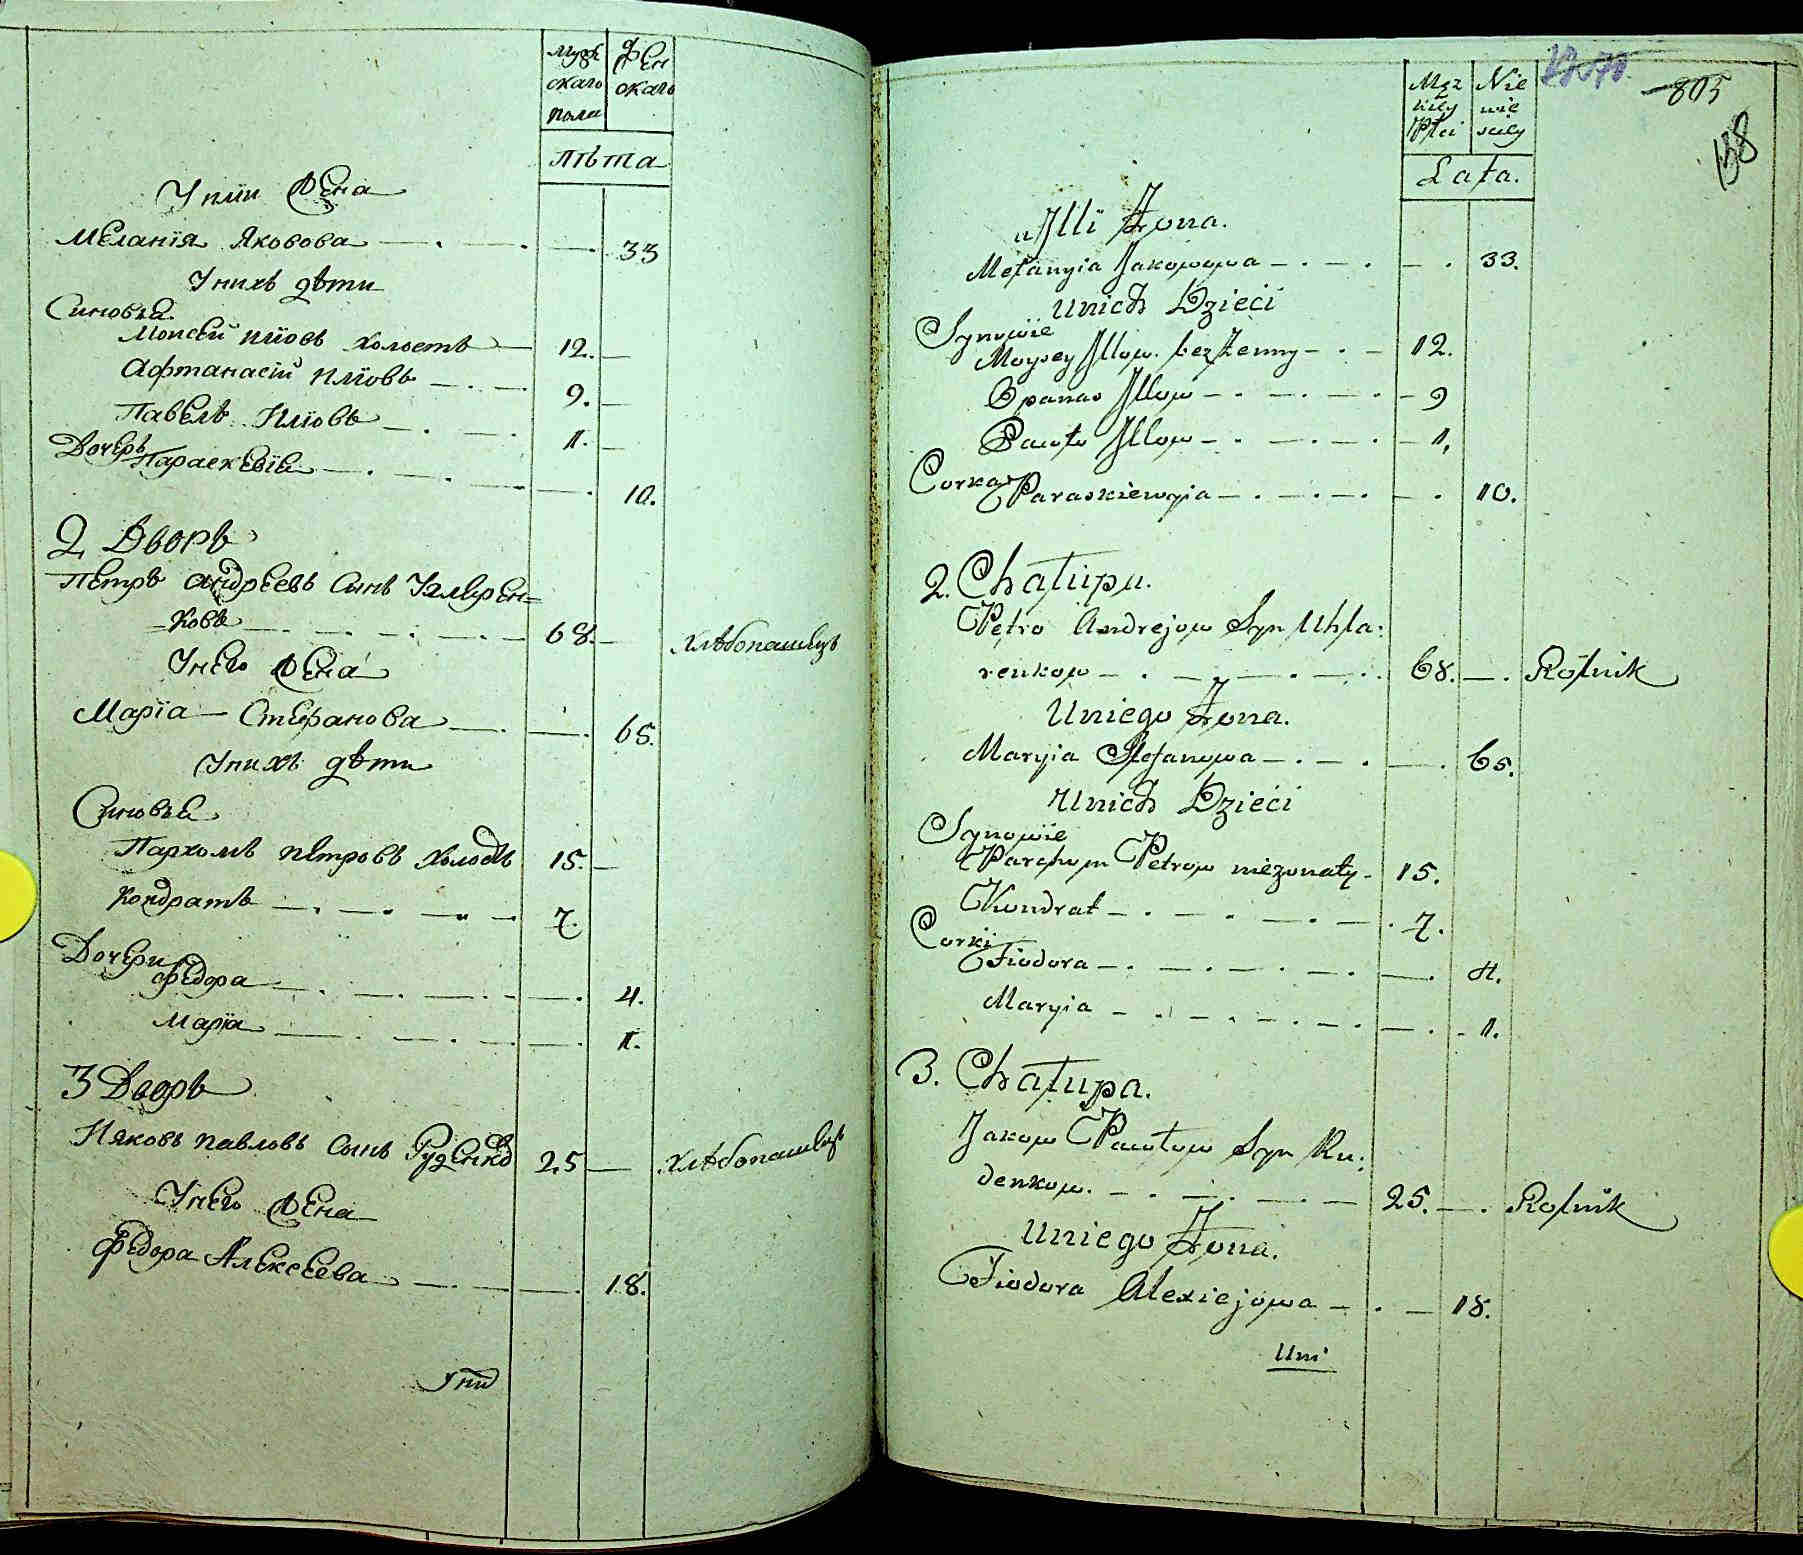 мужскаго пола
женскаго
лѣта
У илїи Жена
Меланїя Яковова 33
У нихъ дѣти
Синовья
Моисей илїовъ холостъ 12.
Афтанасїй илїовъ 9.
Павелъ Илїовъ 1.
Дочерь Параскевїя 10.
2 Дворъ
Петръ андреевъ Синъ Ухлярен=
ковъ 68. хлѣбопашецъ
У него Жена
Марїа Стефанова 65.
У нихъ дѣти
Синовья
Пархомъ петровъ холостъ 15.
Кондратъ 7.
Дочери
федора 4.
Марїа 1.
3 Дворъ
Ияковъ павловъ синъ Руденко 25 хлѣбопашецъ
У него Жена
федора Алексеева 18.
У ни
Męzkiey Płci
Niewieściey
Lata.
805
138
u Illi Żona.
Mełanyia Jakowowa 33.
U nich Dzieci
Synowie
Moysey Illow. bezżenny 12.
Opanas Illow 9
Pawło Illow 1,
Corka Paraskiewyia 10.
2. Chałupa.
Petro Andrejow Syn Uhla:
renkow 68. Rolnik
U niego Żona.
Maryia Stefanowa 65.
U nich Dzieci
Synowie
Parchom Petrow nieżonaty 15.
Kondrat 7.
Corki
Fiodora 4.
Maryia 1.
3. Chałupa.
Jakow Pawłow Syn Ru:
denkow. 25. Rolnik
U niego Żona.
Fiodora Alexiejowa 18.
Uni